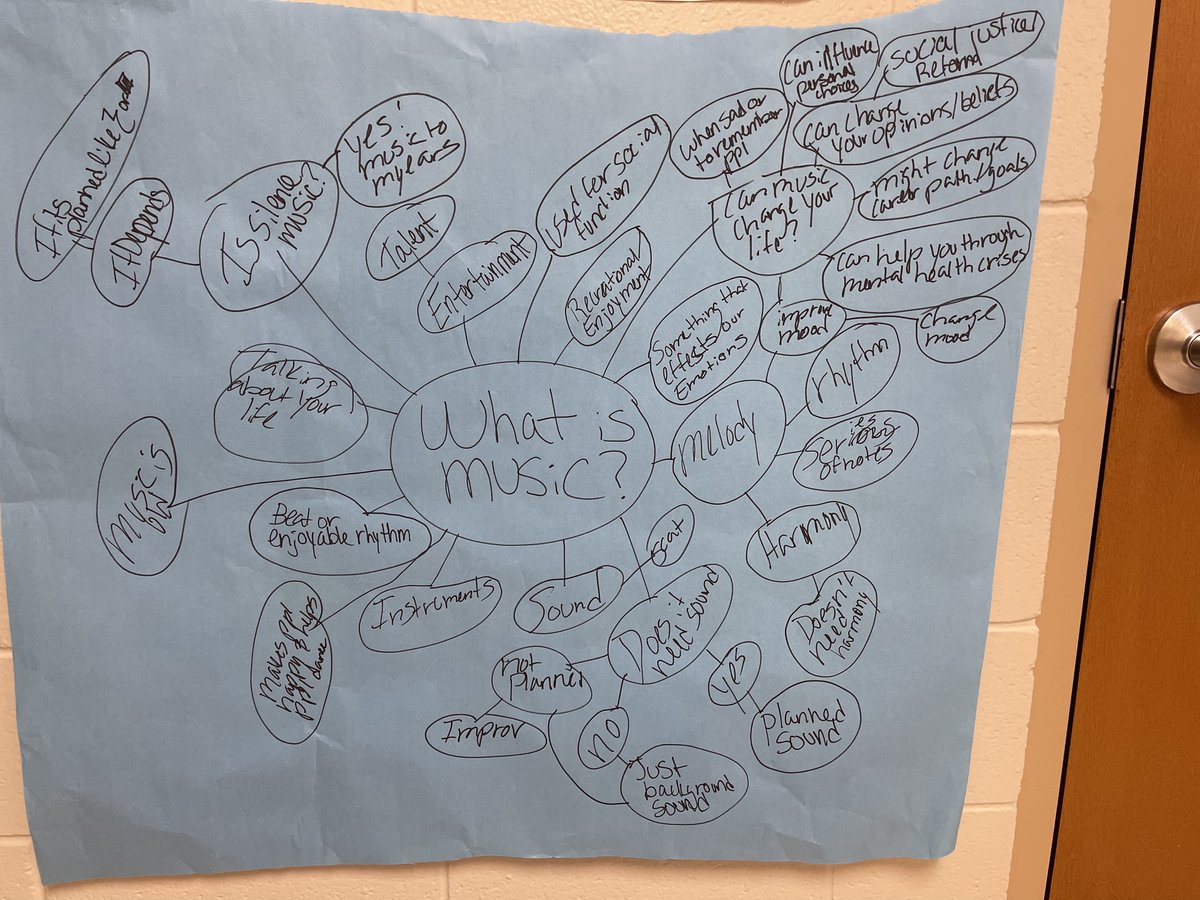 What is
music?
Is silence
music?
Yes!
music to
my ears
It Depends
If its
planned like
Talent
Entertainment
Used for social
function
Recrational
Enjoyment
Can music
change your
life?
when sad or
to remember
ppl
Can influence
personal
choices
Social justice/
Reform
Can change
your opinions/beliefs
might change
career path/goals
Can help you through
mental health crises
improve
mood
change
mood
Something that
effects our
Emotions
melody
rhythm
Series
of notes
Harmony
Doesn't
need
harmony
Does it
need sound
yes
planned
sound
no
Just
background
sound
not
planned
Improv
Sound
scat
Instruments
makes ppl
happy & helps
ppl dance
Beat or
enjoyable rhythm
music is
Talking
about your
life